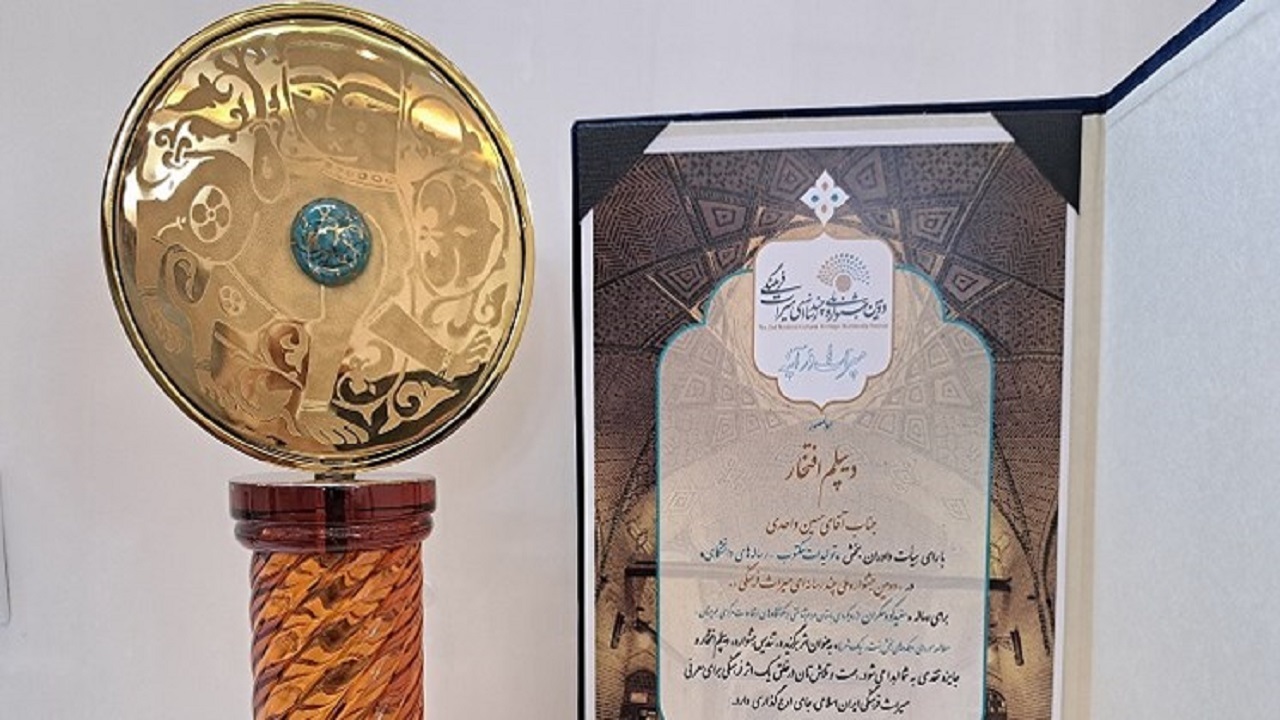 دومین جشنواره ملی چندرسانه‌ای میراث فرهنگی
The 2nd National Cultural Heritage Multimedia Festival
دیپلم افتخار
جناب آقای حسین واحدی
با رای هیات داوران بخش «تولیدات مکتوب - رساله‌های دانشگاهی»
در «دومین جشنواره ملی چند رسانه‌ای میراث فرهنگی»
برای رساله
به عنوان اثر برگزیده، تندیس جشنواره، دیپلم افتخار و
جایزه نقدی به شما اهدا می‌شود. همت و تلاش‌تان در خلق یک اثر فرهنگی برای معرفی
میراث فرهنگی ایران اسلامی جای ارج گذاری دارد.